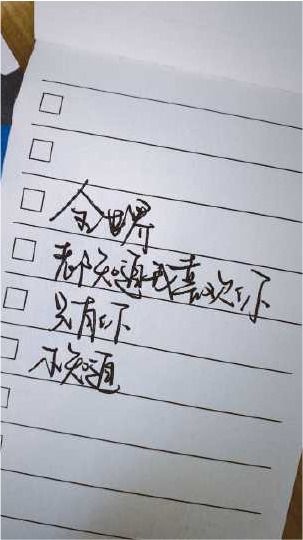 全世界
都知道我喜欢你
只有你
不知道